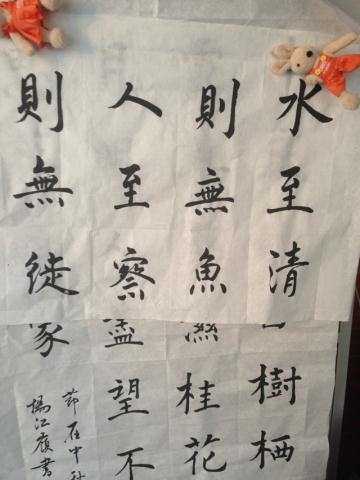 水至清
則無魚
人至察
則無徒
樹栖
桂花
盡望不
家
節在中秋
楊江書